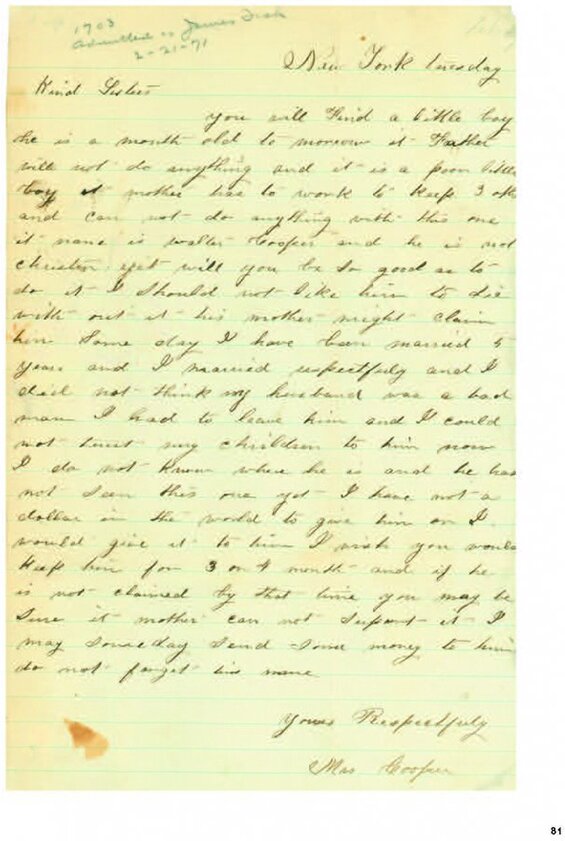 1703
Admitted as James Fisk
2-21-71
New York tuesday
Kind Sisters
you will find a little boy
he is a month old to morrow it Father
will not do anything and it is a poor little
boy it mother has to work to keep 3 oth
and can not do anything with this one
it name is walter Cooper and he is not
christen yet will you be so good as to
do it I should not like him to die
with out it his mother might claim
him Some day I have been married 5
years and I married respectfuly and I
did not think my husband was a bad
man I had to leave him and I could
not trust my children to him now
I do not know where he is and he has
not seen this one yet I have not a
dollar in the world to give him or I
would give it to him I wish you would
keep him for 3 or 4 month and if he
is not claimed by that time you may be
Sure it mother can not Support it I
may someday Send Some money to him
do not forget his name
Yours Respectfuly
Mrs Cooper
81